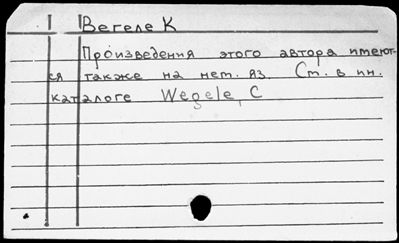 Вегеле К
Произведения этого автора имеют-
ся также на нем. яз. См. в ин.
каталоге Wegele, C